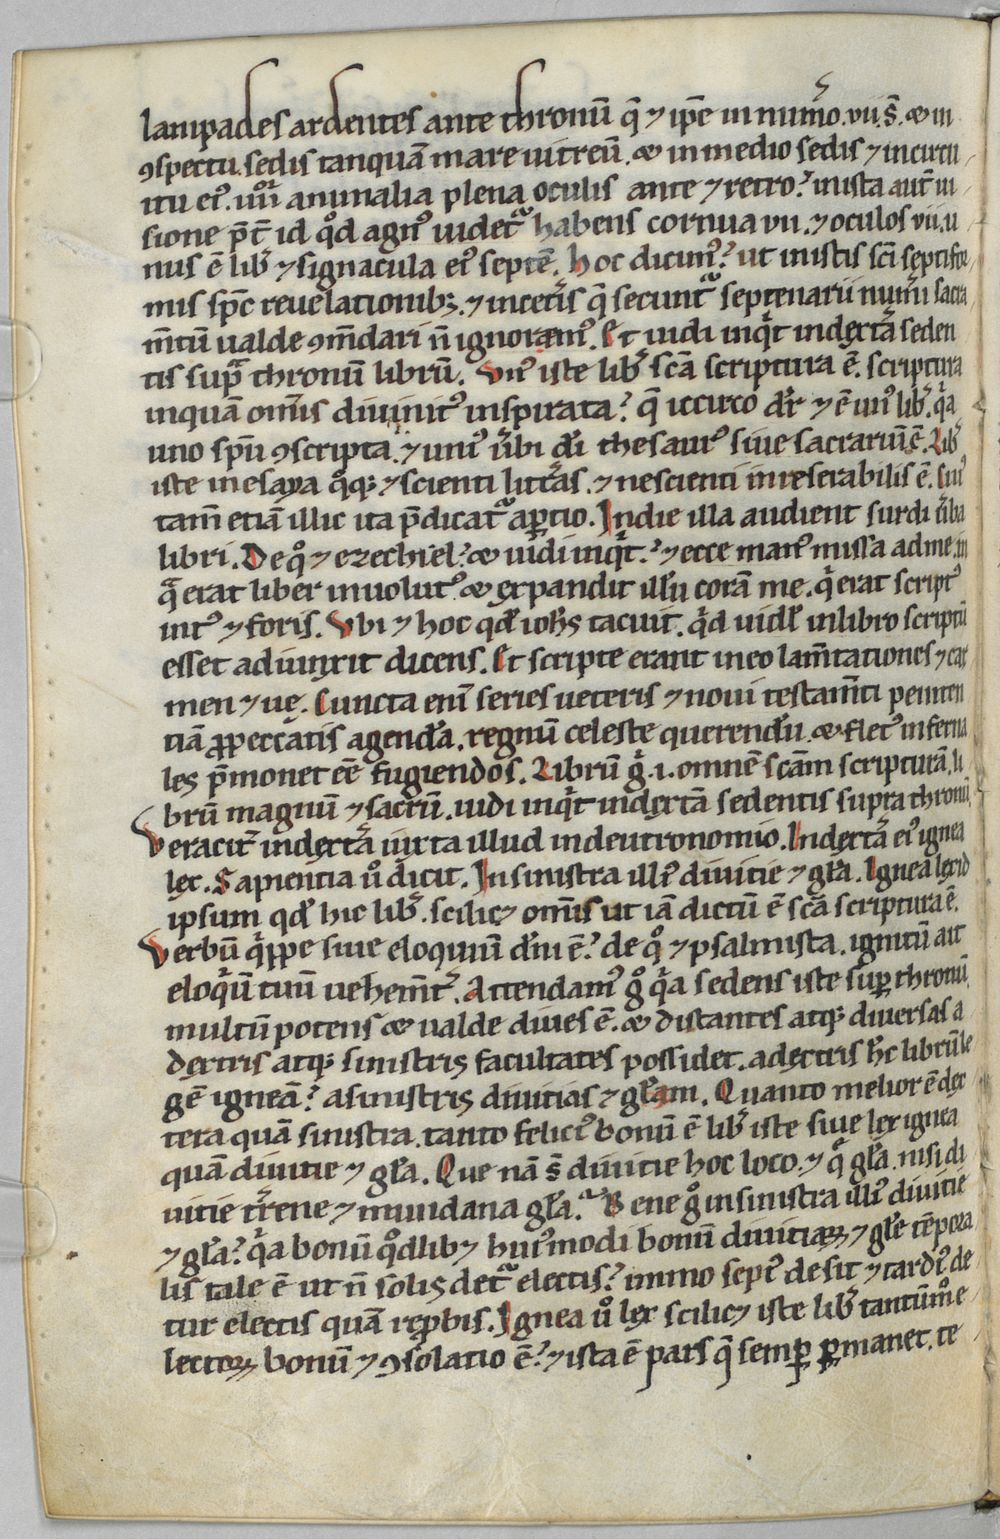 lampades ardentes ante thronū q̄ ⁊ ip̄e in num̄o .vii. s̄. & in
ꝯspectu sedis tanquā mare uitreū. & in medio sedis ⁊ incircu
itu eꝰ. iiii animalia plena oculis ante ⁊ retro? inista aut̄ ui
sione p̄t̄ id q̊d agnꝰ uidet᷑ habens cornua vii. ⁊ oculos vii. u
nus ē lib̄ ⁊ signacula eꝰ septē. Hoc dicimꝰ? ut inistis sc̄i septifor
mis sp̄c reuelationibꝫ. ⁊ incet̄is q̄ secunt᷑ septenarii num̄i sacra
m̄tū ualde ꝯm̄dari n̄ ignoramꝰ. Et uidi inq̇t indext̄a seden
tis sup̄ thronū librū. Vnꝰ iste lib̄ sc̄a scriptura ē. scriptura
inquā om̄is diuinitꝰ inspirata? q̄ iccirco dr̄ ⁊ ē unꝰ lib̄. q̇a
uno sp̄u ꝯscripta. ⁊ uniꝰ ūbi dı̄ thesaurꝰ siue sacrariū ē. Lib̄
iste inesaya q̊qꝫ ⁊ scienti litt̄as. ⁊ nescienti inreserabilis ē. Suiꝰ
tam̄ etiā illic ita p̄dicat᷑ aꝑtio. In die illa audient surdi ūba
libri. De q̊ ⁊ ezechiel? & uidi inq̇t? ⁊ ecce manꝰ missa adme. in
q̄ erat liber inuolutꝰ. & expandit illū corā me. q̇ erat scriptꝰ
intꝰ ⁊ foris. Vbi ⁊ hoc qd̄ ioħs tacuit. q̇d uidı̄ inlibro scriptū
esset adiunxit dicens. Et scripte erant ineo lam̄tationes ⁊ car
men ⁊ ue. Cuncta eni̅ series ueteris ⁊ noui testam̄ti peniten
tiā ꝓ peccatis agendā. regnū celeste querendū. & fletꝰ inferna
les p̄monet eē fugiendos. Librū g̊ .i. omnē sc̄am scripturā. li
brū magnū ⁊ sacrū. uidi inq̇t indextā sedentis supra thronū.
Veracit̄ indext̄a iuxta illud indeutronomio. Indext̄a eiꝰ ignea
lex. Sapientia u̅ dicit. In sinistra illiꝰ diuitie ⁊ gl̄a. Ignea lex id
ipsum qd̄ hic lib̄. scilicꝫ om̄is ut iā dictū ē sc̄a scriptura ē.
Verbū q̇ppe siue eloquiū dn̄i ē? de q̊ ⁊ psalmista. ignitū ait
eloq̇ū tuū uehem̄t̄. Attendamꝰ g̊ q̇a sedens iste suꝑ thronū.
multū potens & ualde diues ē. & distantes atqꝫ diuersas a
dextris atqꝫ sinistris facultates possidet. adextris h̄c librū le
gē igneā? asinistris diuitias ⁊ gl̄am. Quanto melior ē dex
tera quā sinistra. tanto feliciꝰ bonū ē lib̄ iste siue lex ignea
quā diuitie ⁊ gl̄a. Que nā s̄ diuitie hoc loco. ⁊ q̄ gl̄a. nisi di
uitie t̄rene ⁊ mundana gl̄a. Bene g̊ insinistra illiꝰ diuitie
⁊ gl̄a? q̇a bonū q̊dlibꝫ huiꝰmodi bonū diuitiaꝝ ⁊ gl̄e tēpora
lis tale ē ut n̄ solis det᷑ electis? immo sepiꝰ desit ⁊ tardiꝰ de
tur electis quā reꝓbis. Ignea u̅ lex scilicꝫ iste lib̄ tantūm̊ e
lectoꝝ bonū ⁊ ꝯsolatio ē? ⁊ ista ē pars q̄ semꝑ ꝑmanet. te